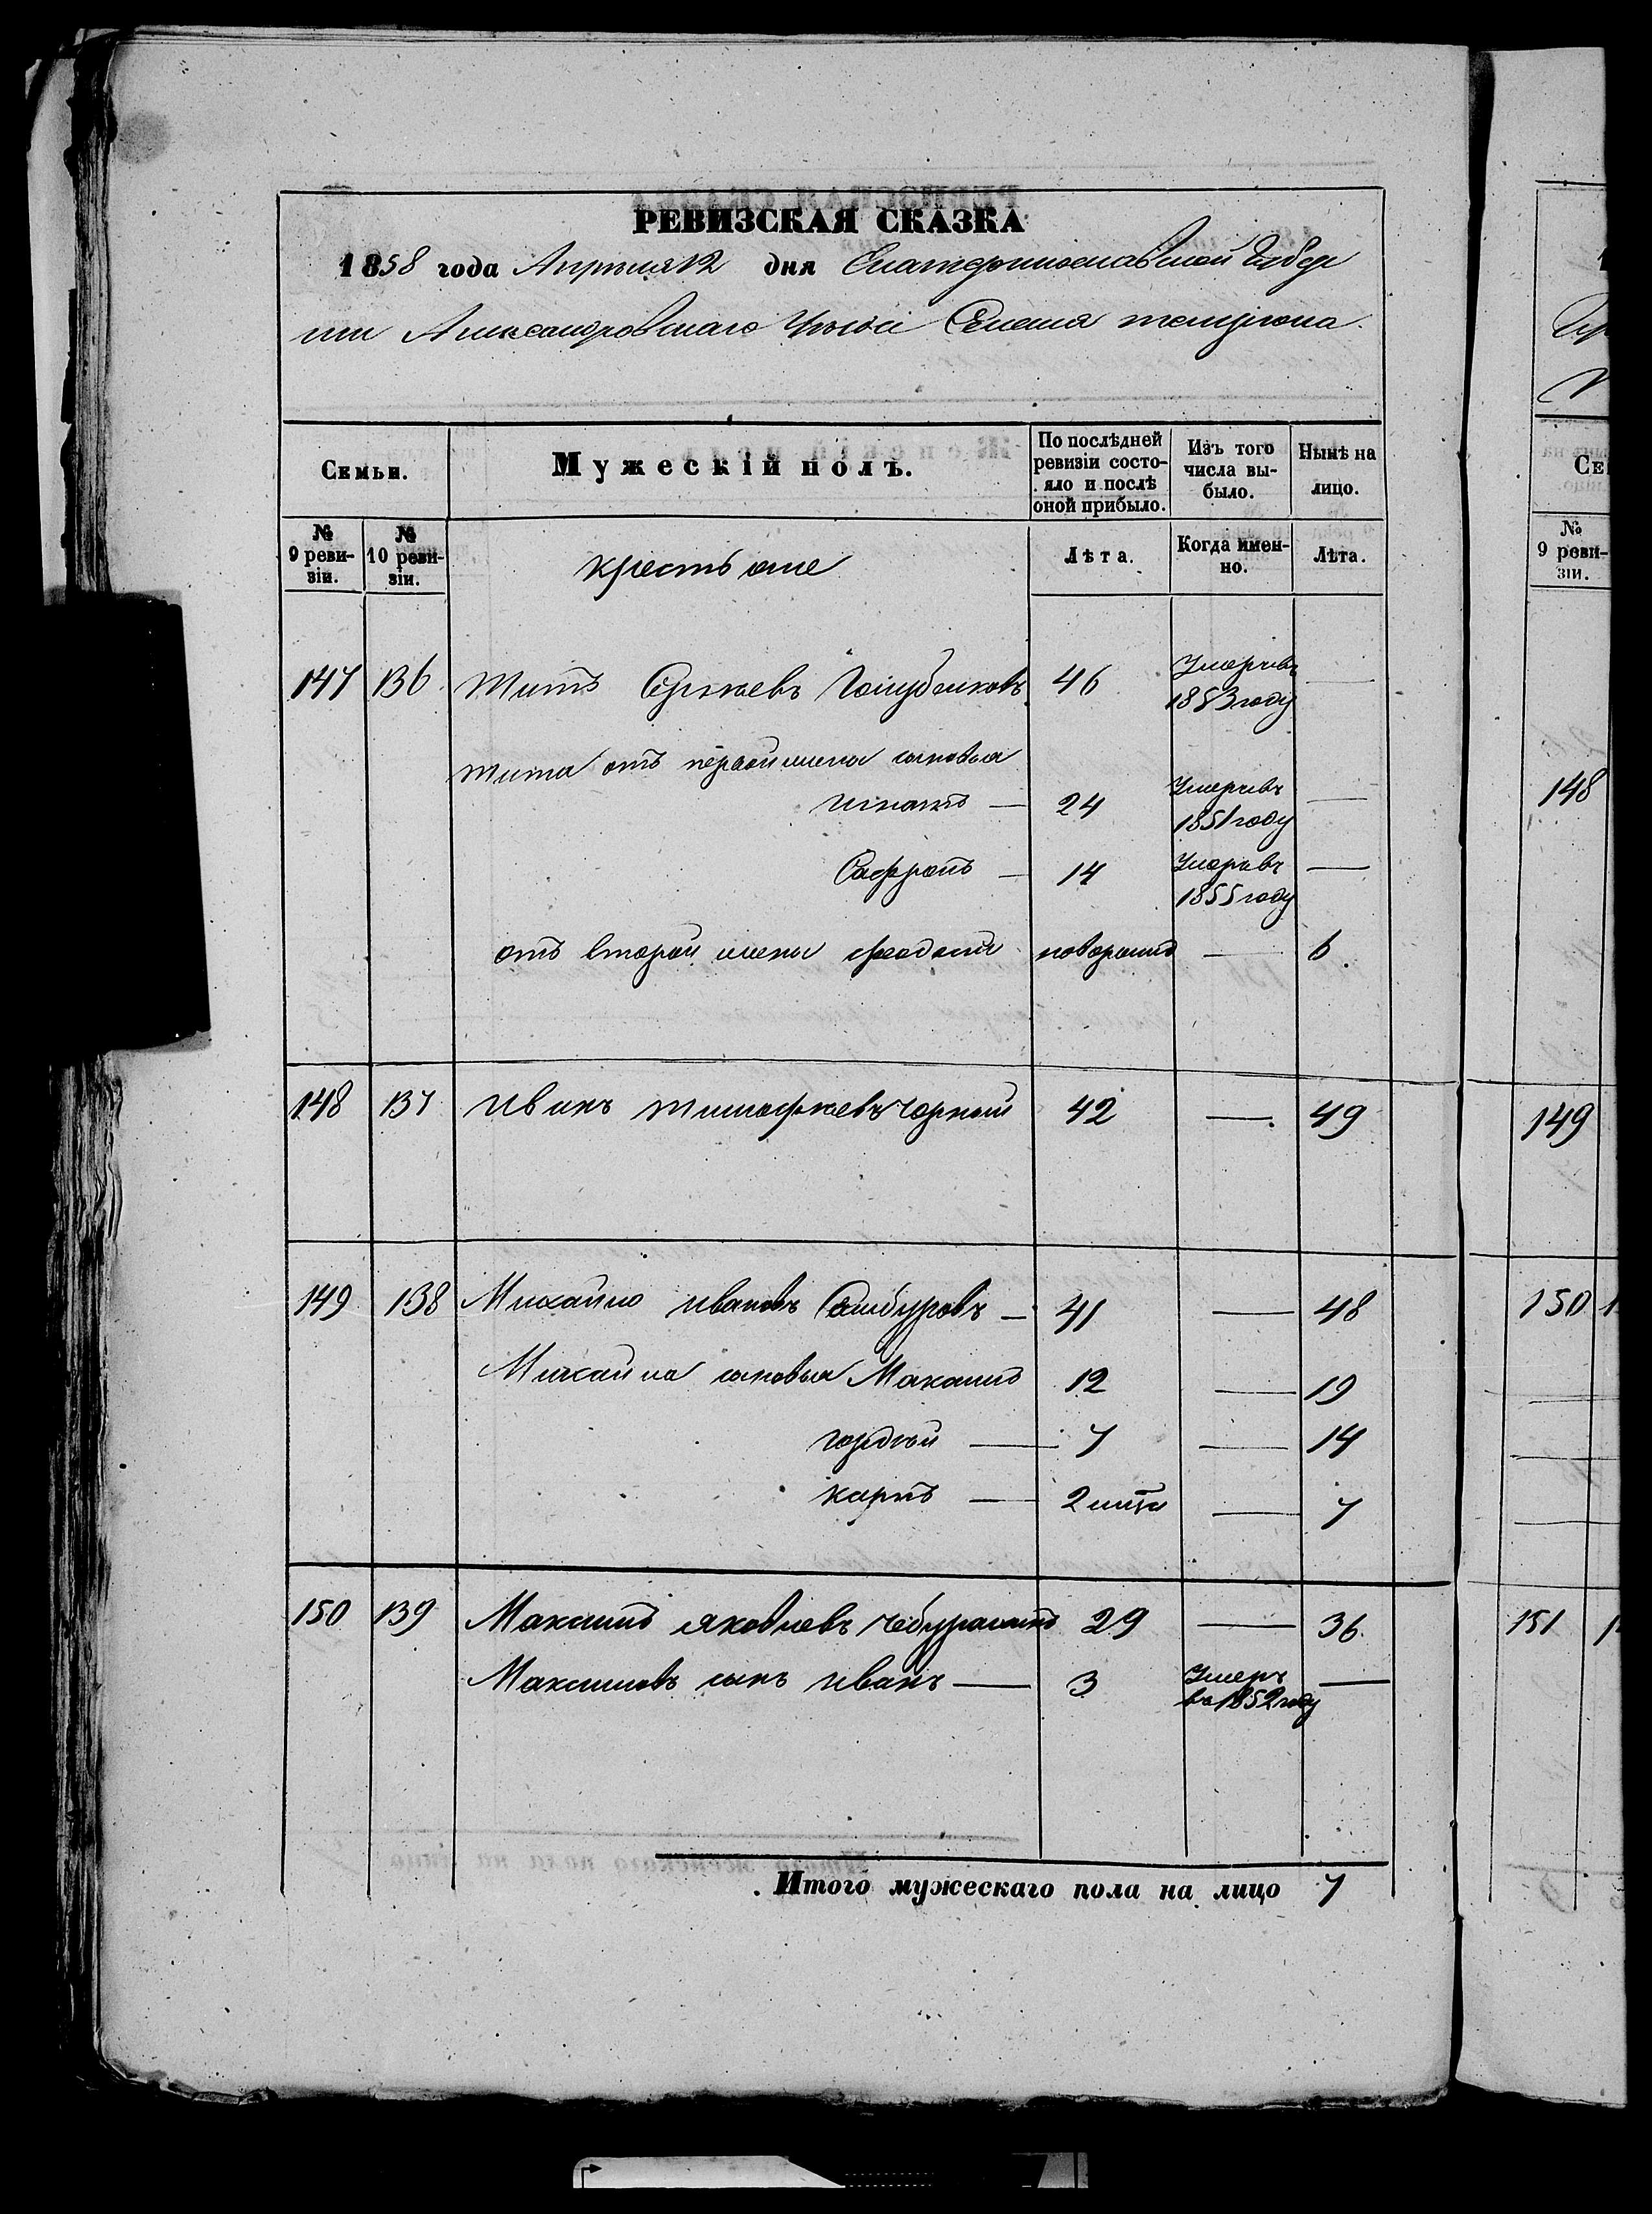 РЕВИЗСКАЯ СКАЗКА
1858 года Апрѣля 12 дня Екатеринославской Губер
нии Александровскаго Уѣзда Селенія
Семьи. Мужескій полъ. По послѣдней ревизіи состояло и послѣ оной прибыло. Изъ того числа выбыло. Нынѣ на лицо.
№ 9 ревизіи. № 10 ревизіи. крестьяне Лѣта. Когда именно. Лѣта.
147 136 Титъ Сергѣевъ Голубниковъ 46 Умеръ въ 1853 году —
Тита отъ первой жены сыновья
Игнатъ — 24 Умеръ въ 1851 году —
Сафронъ — 14 Умеръ въ 1855 году —
отъ второй жены Феодосій новорожд — 6.
148 137 Иванъ Тимофѣевъ Чорный 42 — 49
149 138 Михайло Ивановъ Самбуровъ — 41 — 48
Михайла сыновья Максимъ 12 — 19
Гордѣй — 7 — 14
Карпъ — 2 — 7
150 139 Максимъ Яковлевъ 29 — 36.
Максимовъ сынъ Иванъ — 3 Умеръ въ 1852 году —
Итого мужескаго пола на лицо 7
СЕ
№ 9 ревизіи.
148
149
150
151